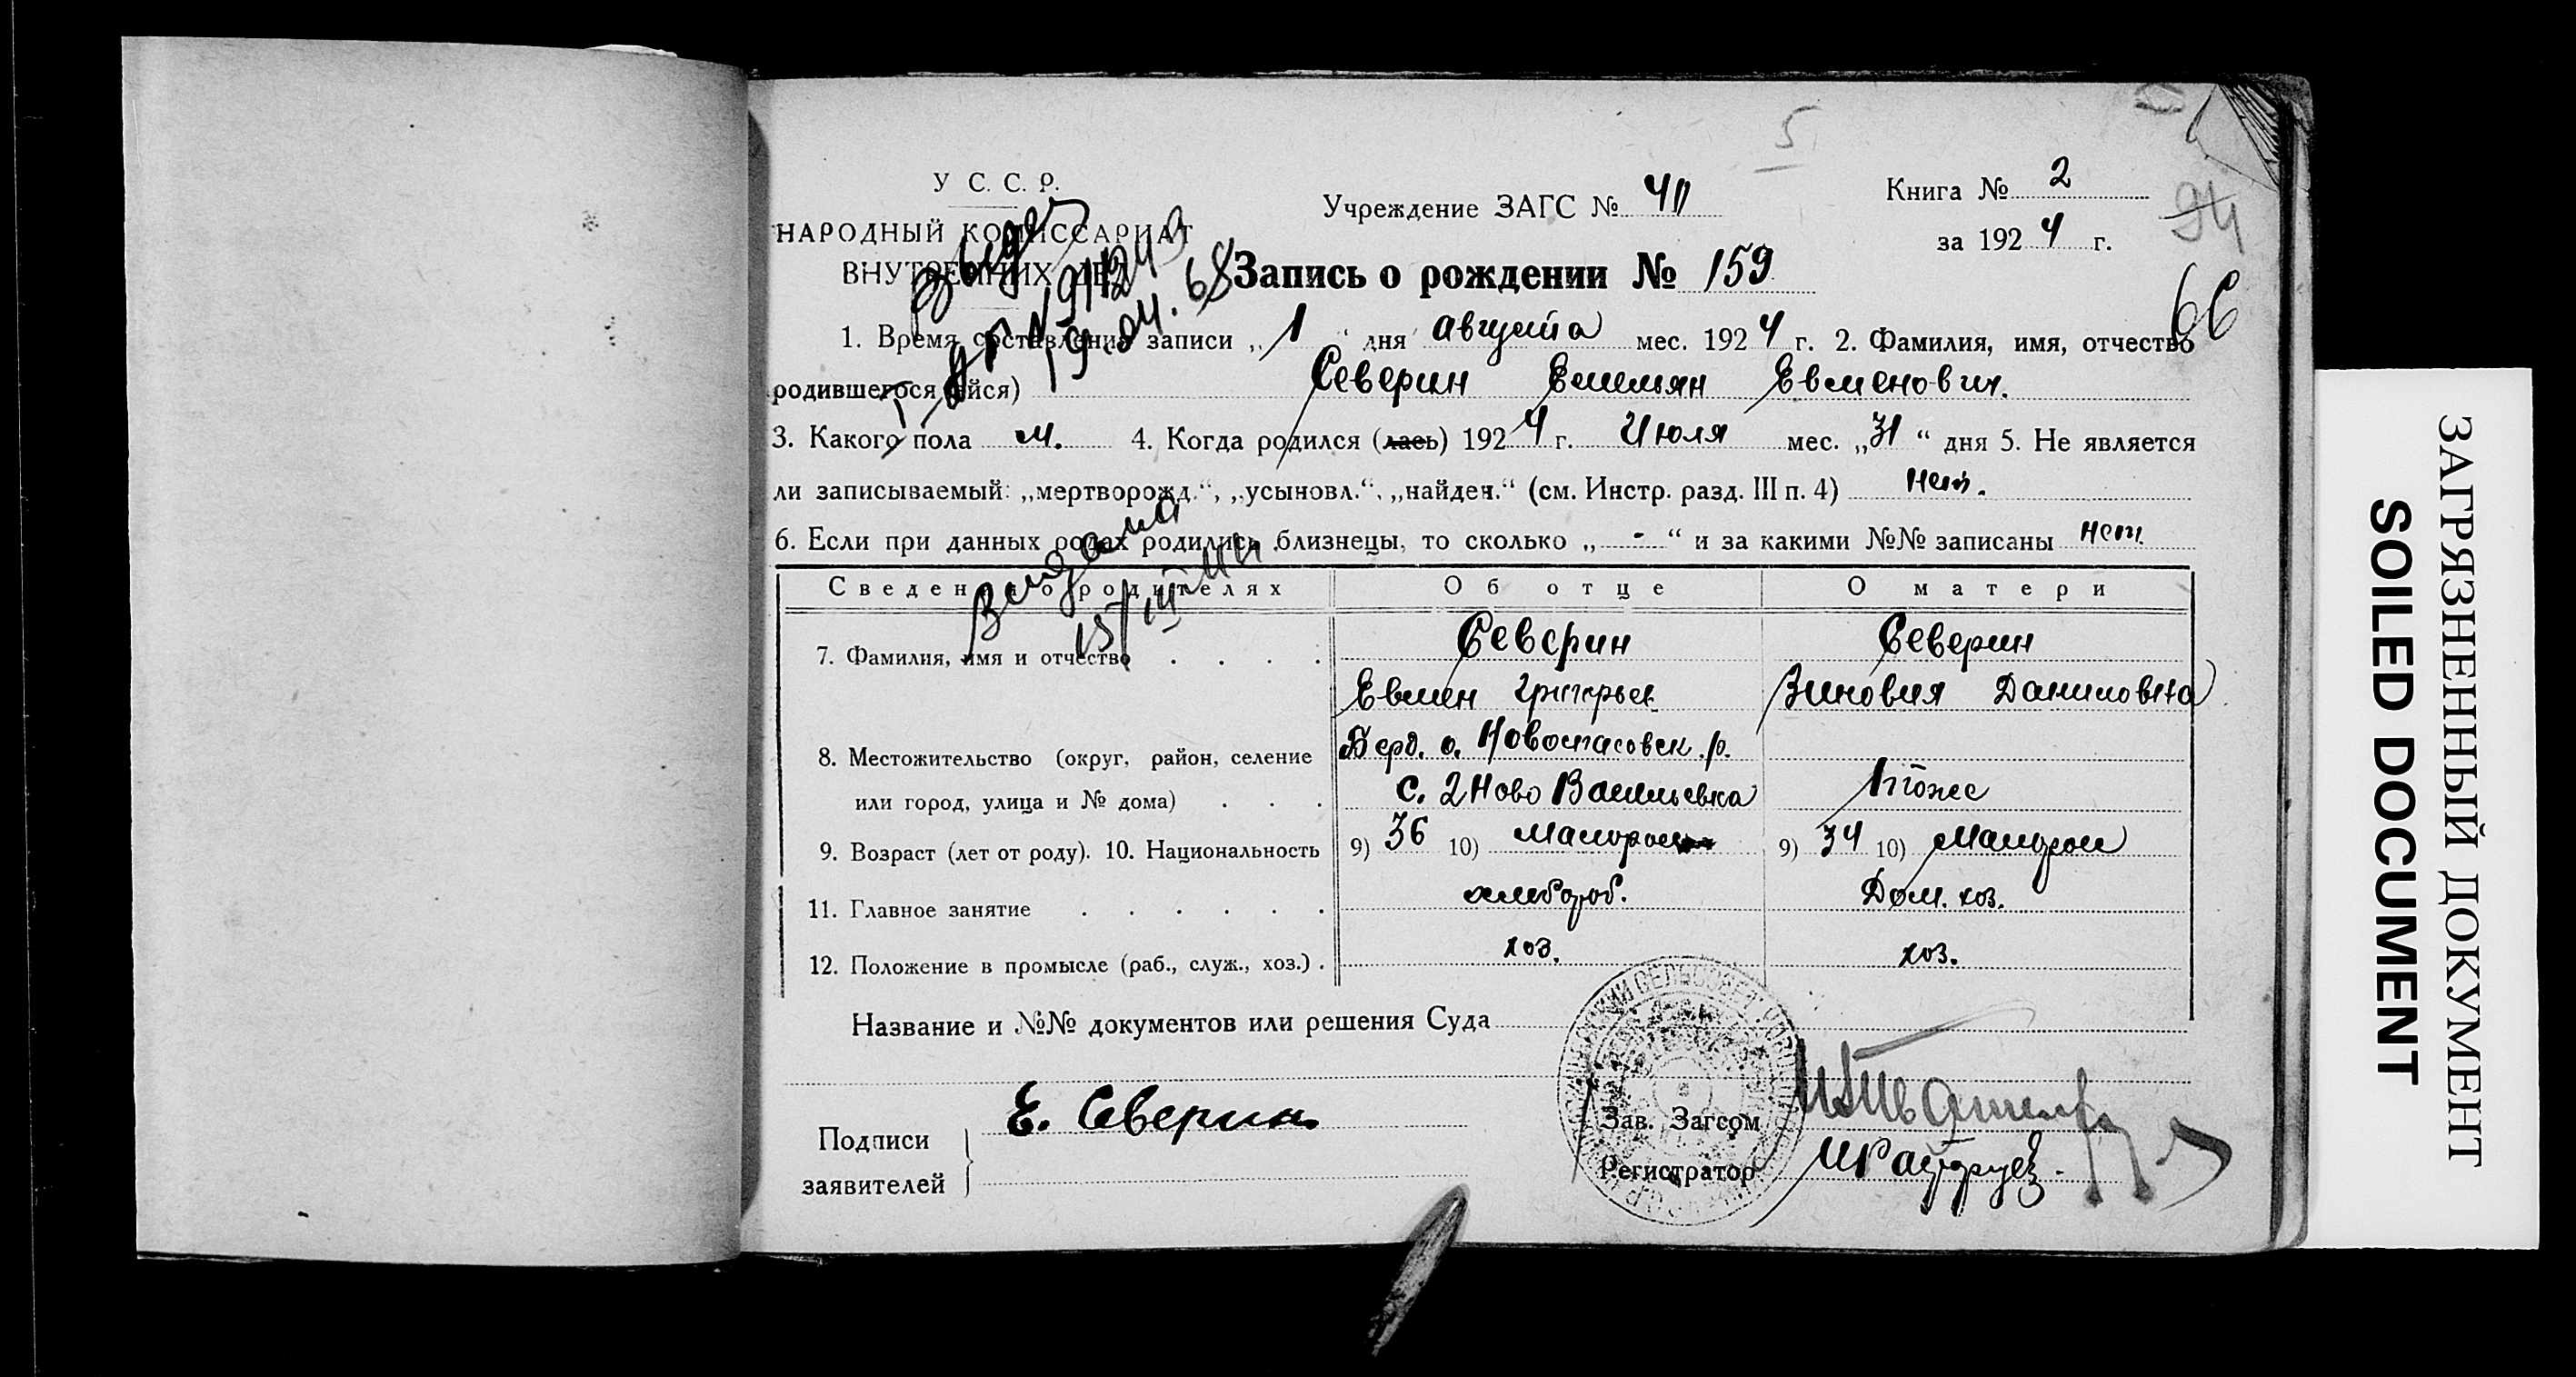 5
У С. С. Р.
НАРОДНЫЙ КОМИССАРИАТ
ВНУТРЕННИХ ДЕЛ
Учреждение ЗАГС № 40
Книга № 2
за 1924 г.
94
66
Запись о рождении № 159
1. Время составления записи „1“ дня августа мес. 1924 г. 2. Фамилия, имя, отчество
родившегося (ейся) Северин Емельян Евменович.
3. Какого пола м. 4. Когда родился (лась) 1924 г. Июля мес. „31“ дня 5. Не является
ли записываемый: „мертворожд.“, „усыновл.“, „найден.“ (см. Инстр. разд. III п. 4) нет.
6. Если при данных родах родились близнецы, то сколько „-“ и за какими №№ записаны нет.
Выдано
15/III 44
Сведения о родителях Об отце О матери
7. Фамилия, имя и отчество . . . . Северин Северин
Евмен Григорьев. Зиновия Даниловна
8. Местожительство (округ, район, селение Берд. о. Новоспасовск. р.
или город, улица и № дома) . . . с. 2 Ново Васильевка тоже
9. Возраст (лет от роду). 10. Национальность 9) 36 10) Малорос 9) 34 10) Малорос
11. Главное занятие . . . . . . хлебороб. Дом. хоз.
12. Положение в промысле (раб., служ., хоз.) . хоз. хоз.
Название и №№ документов или решения Суда
Подписи
заявителей
Е. Северин
Зав. Загсом
Регистратор
ЗАГРЯЗНЕННЫЙ ДОКУМЕНТ
SOILED DOCUMENT